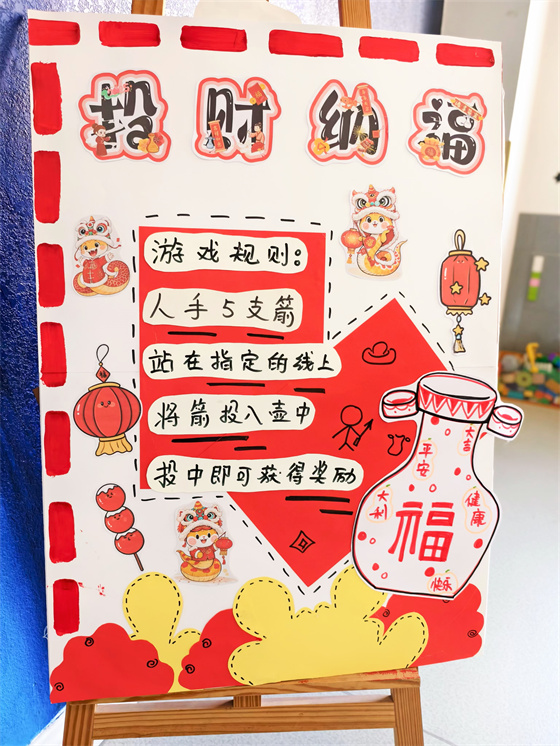 投财纳福
游戏规则:
人手5支箭
站在指定的线上
将箭投入壶中
投中即可获得奖励
大吉
平安
大利
健康
福
快乐